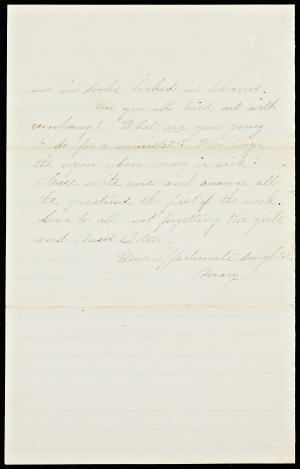 nor in books locked in libraries.
Are you all tired out with
company? What are you going
to do for a minister? Who plays
the organ when Mary is sick?
Please write me and answer all
the questions the first of the week.
Love to all not forgetting the girls
and Miss Doten.
Your affectionate daughter
Mary.